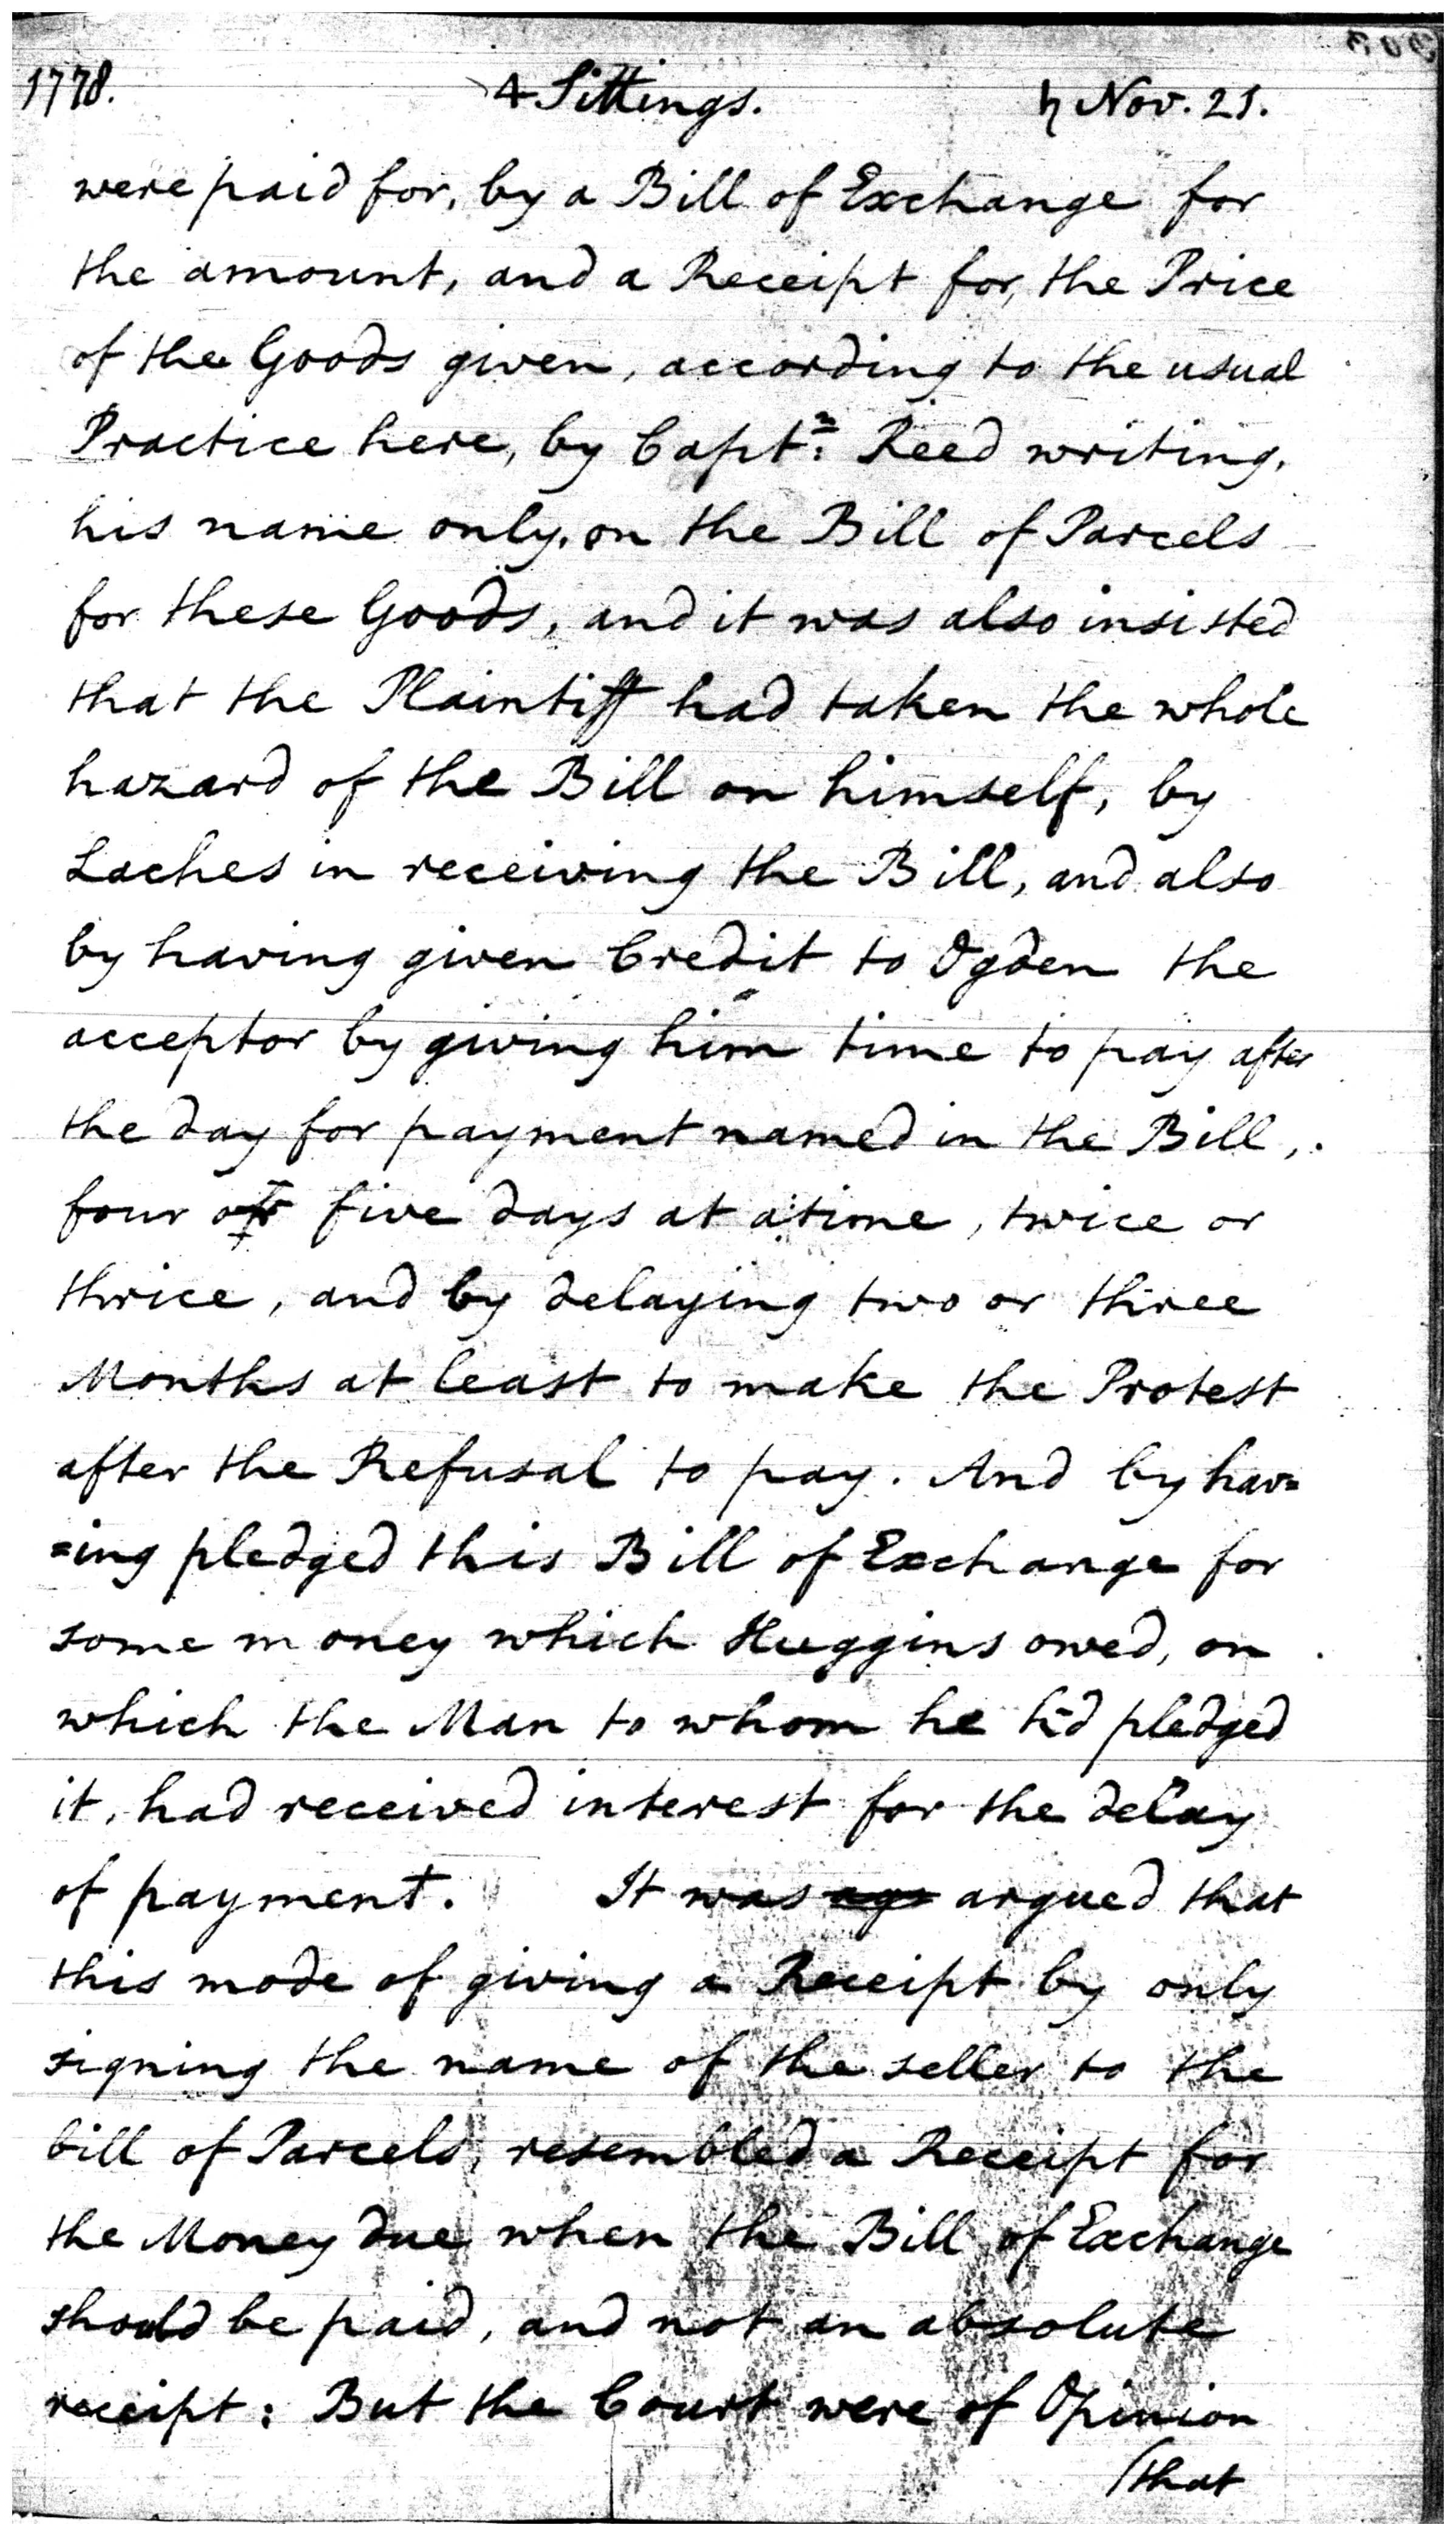 1778. 4 Sittings. ♄ Nov. 21.
were paid for, by a Bill of Exchange for
the amount, and a Receipt for, the Price
of the Goods given, according to the usual
Practice here, by Capt:ⁿ Reed writing,
his name only, on the Bill of Parcels
for these Goods, and it was also insisted
that the Plaintiff had taken the whole
hazard of the Bill on himself, by
Laches in receiving the Bill, and also
by having given Credit to Ogden the
acceptor by giving him time to pay after
the day for payment named in the Bill,
four or five days at a time, twice or
thrice, and by delaying two or three
Months at least to make the Protest
after the Refusal to pay. And by hav=
=ing pledged this Bill of Exchange for
some money which Huggins owed, on
which the Man to whom he h'd pledged
it, had received interest for the delay
of payment. It was argued that
this mode of giving a Receipt by only
signing the name of the seller to the
bill of Parcels, resembled a Receipt for
the Money due when the Bill of Exchange
should be paid, and not an absolute
receipt: But the Court were of Opinion
(that